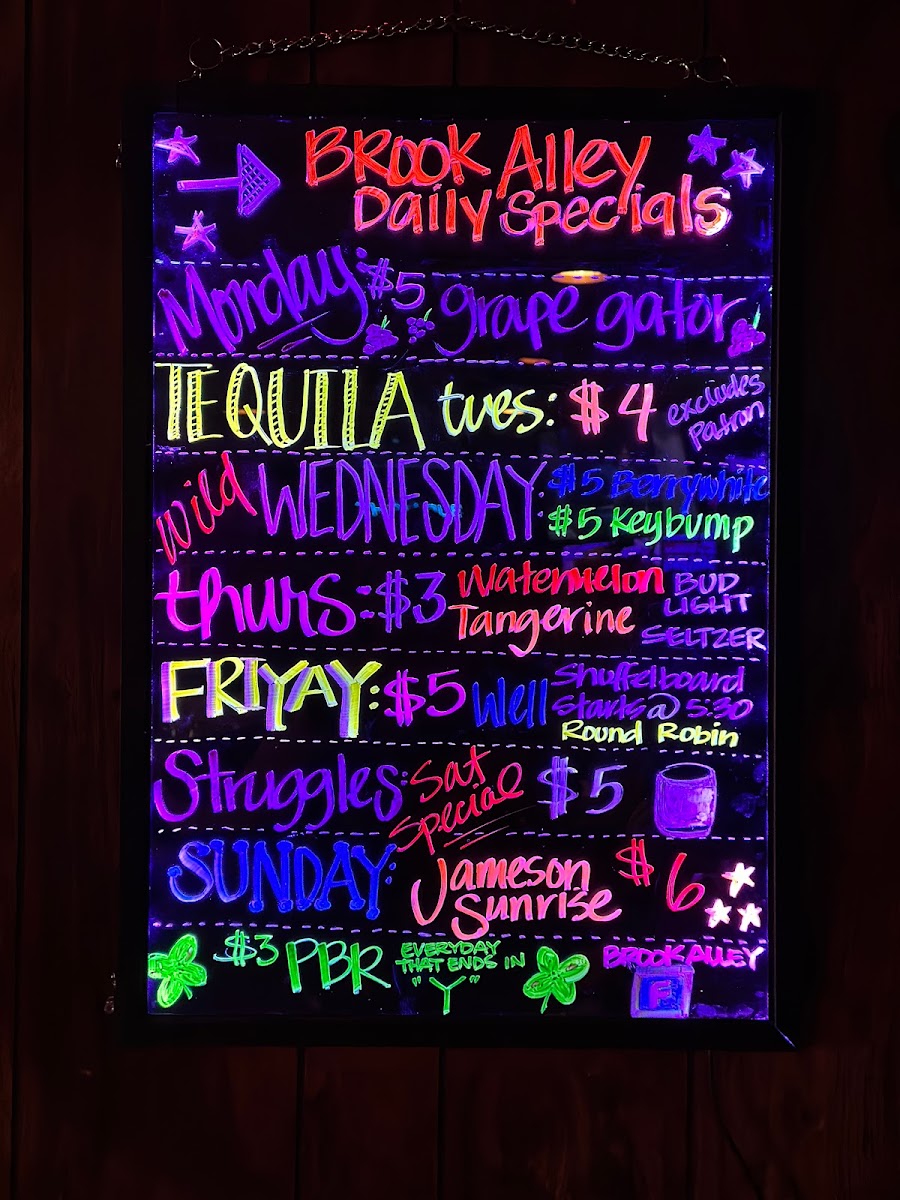 Brook Alley
Daily Specials
Monday: $5 grape gator
TEQUILA tues: $4 excludes Patron
Wild WEDNESDAY: $5 Berrywhite
$5 Keybump
thurs: $3 Watermelon Tangerine BUD LIGHT SELTZER
FRIYAY: $5 Well Shuffelboard
Starts @ 5:30
Round Robin
Struggles: Sat Special $5
SUNDAY: Jameson Sunrise $6
$3 PBR EVERYDAY THAT ENDS IN "Y"
BROOK ALLEY
F